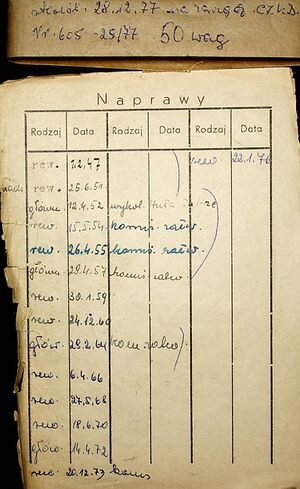 28.12.77 na
Nr. 605-25/77 50 wag
Naprawy
Rodzaj Data Rodzaj Data Rodzaj Data
rew. 1.2.47 rew. 22.1.76
rew. 25.6.51
główn. 12.4.52
rew. 15.5.54 komis.
rew. 26.4.55 komis.
główn. 29.4.57 komis
rew. 30.1.59
rew. 24.12.60
głów. 29.2.64
rew. 6.4.66
rew. 27.5.68
rew. 18.6.70
głów. 14.4.72
rew. 20.12.73 komis